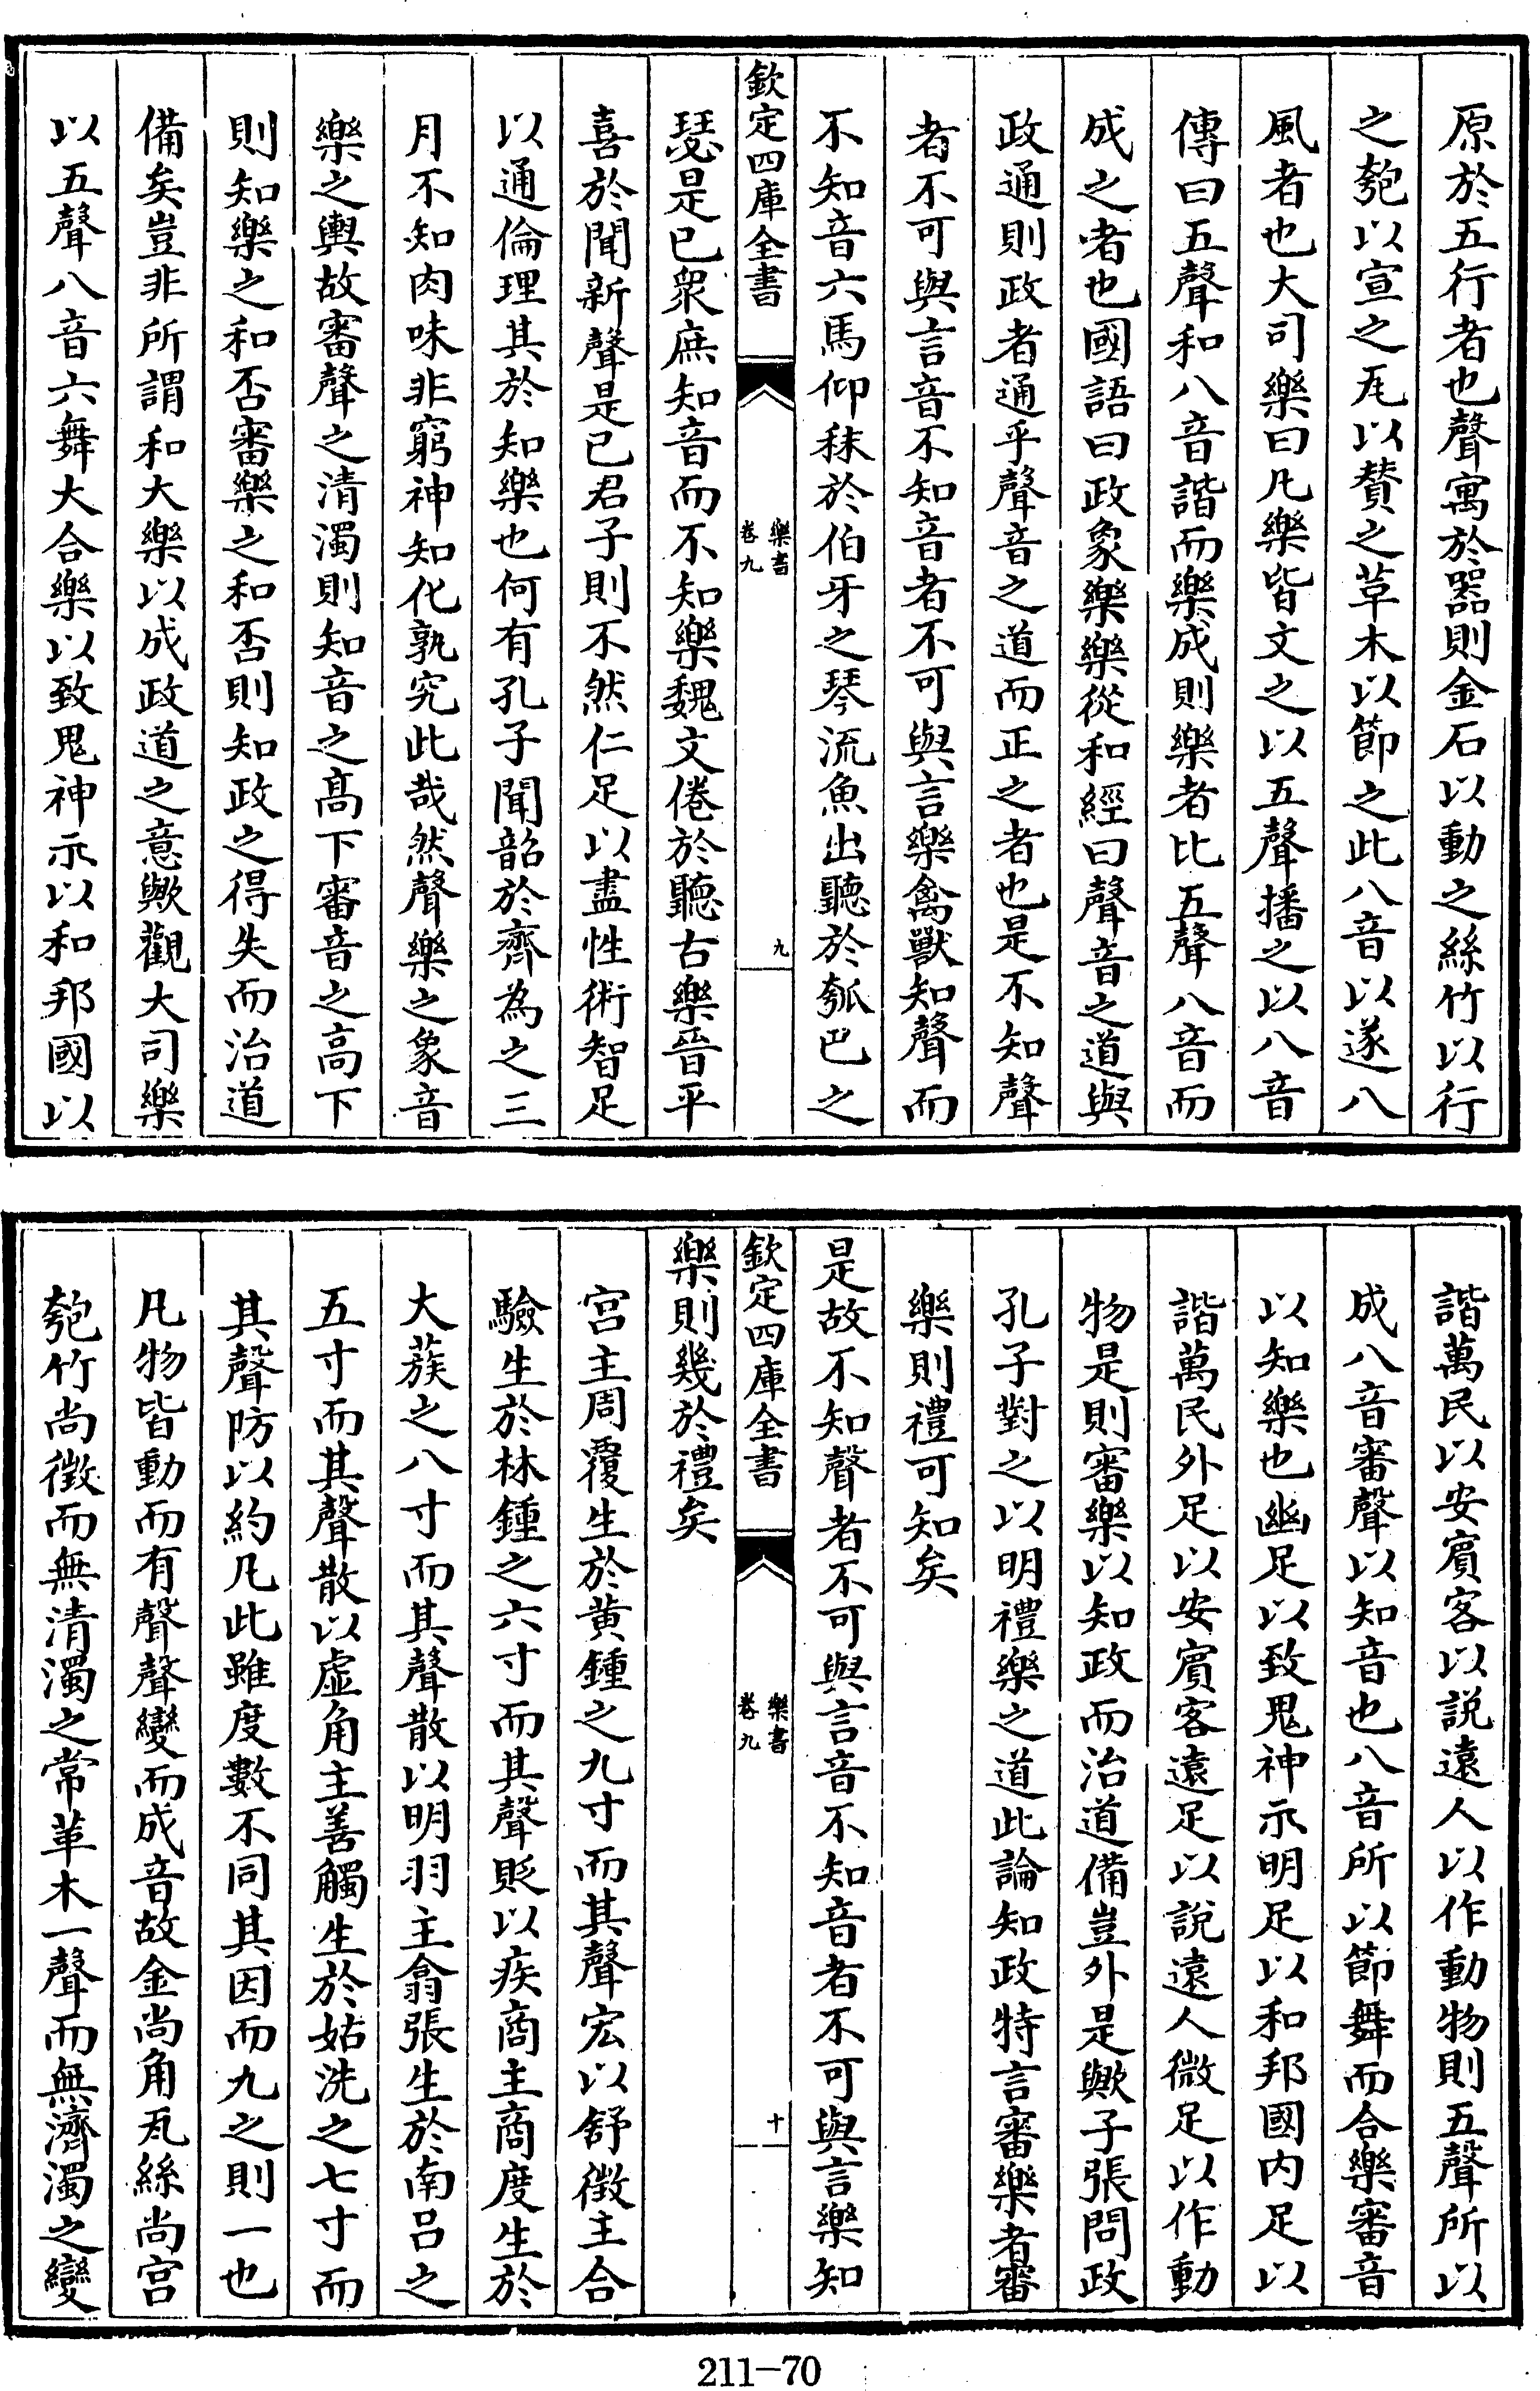 原於五行者也聲寓於器則金石以動之絲竹以行
之匏以宣之瓦以賛之草木以節之此八音以遂八
風者也大司樂曰凡樂皆文之以五聲播之以八音
傳曰五聲和八音諧而樂成則樂者比五聲八音而
成之者也國語曰政象樂樂從和經曰聲音之道與
政通則政者通乎聲音之道而正之者也是不知聲
者不可與言音不知音者不可與言樂禽獸知聲而
不知音六馬仰秣於伯牙之琴流魚出聽於瓠巴之
欽定四庫全書
樂書
卷九
九
瑟是已衆庶知音而不知樂魏文倦於聽古樂晉平
喜於聞新聲是已君子則不然仁足以盡性術智足
以通倫理其於知樂也何有孔子聞韶於齊為之三
月不知肉味非窮神知化孰究此哉然聲樂之象音
樂之輿故審聲之清濁則知音之髙下審音之高下
則知樂之和否審樂之和否則知政之得失而治道
備矣豈非所謂和大樂以成政道之意歟觀大司樂
以五聲八音六舞大合樂以致鬼神示以和邦國以
諧萬民以安賓客以説遠人以作動物則五聲所以
成八音審聲以知音也八音所以節舞而合樂審音
以知樂也幽足以致鬼神示明足以和邦國内足以
諧萬民外足以安賓客遠足以說遠人微足以作動
物是則審樂以知政而治道備豈外是歟子張問政
孔子對之以明禮樂之道此論知政特言審樂者審
樂則禮可知矣
是故不知聲者不可與言音不知音者不可與言樂知
欽定四庫全書
樂書
卷九
十
樂則幾於禮矣
宫主周覆生於黄鍾之九寸而其聲宏以舒徴主合
驗生於林鍾之六寸而其聲貶以疾商主商度生於
大蔟之八寸而其聲散以明羽主翕張生於南呂之
五寸而其聲散以虚角主善觸生於姑洗之七寸而
其聲防以約凡此雖度數不同其因而九之則一也
凡物皆動而有聲聲變而成音故金尚角瓦絲尚宫
匏竹尚徴而無清濁之常革木一聲而無濟濁之變
211-70